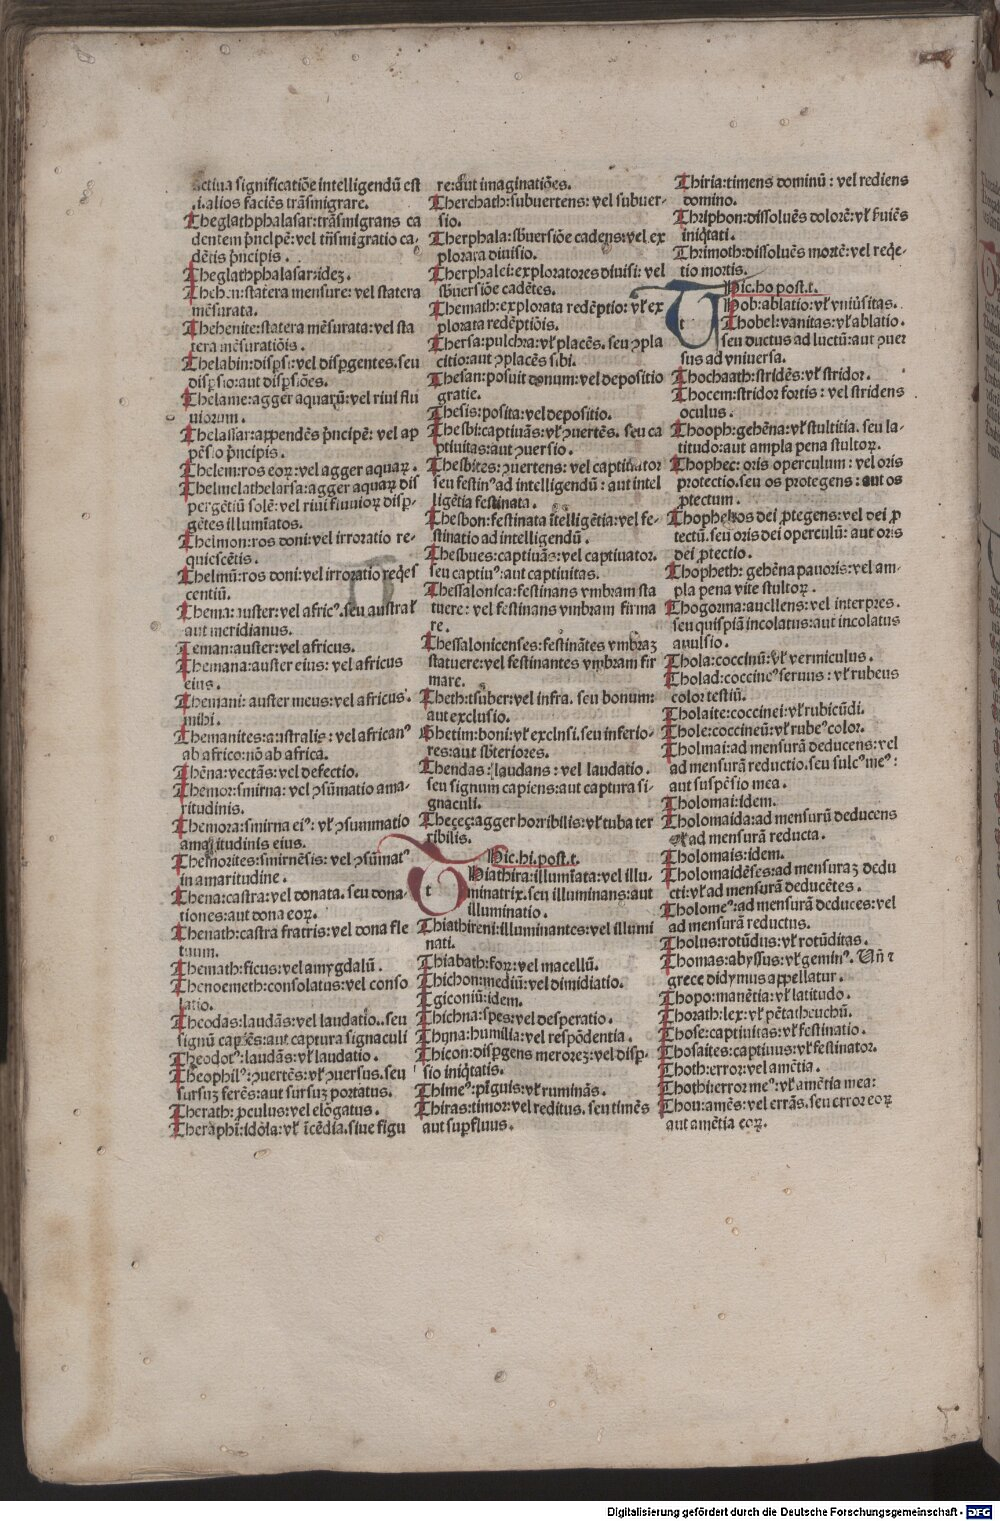 actiua significatiōe intelligendū est
.i. alios faciēs trāsmigrare.
Theglathphalasar: trāsmigrans ca
dentem p̄ncipē: vel trāsmigratio ca-
dētis p̄ncipis.
Theglathphalasar: idez.
Thehen: statera mensure: vel statera
mēsurata.
Thehenite: statera mēsurata: vel sta
tera mēsuratiōis.
Thelabin: disp̄si: vel disp̄gentes. seu
disp̄sio: aut disp̄siōes.
Thelame: agger aquarū: vel riui flu
uiorum.
Thelassar: appendēs p̄ncipē: vel ap
pēsio p̄ncipis.
Thelem: ros eoꝝ: vel agger aquaꝝ.
Thelmelathelarsa: agger aquaꝝ dis
pergētiū solē: vel riui fluuioꝝ disp̄-
gētes illumīatos.
Thelmon: ros doni: vel irroratio re-
quiescētis.
Thelmū: ros doni: vel irroratio reqes
centiū.
Thema: auster: vel africꝰ. seu austral
aut meridianus.
Teman: auster: vel africus.
Themana: auster eius: vel africus
eius.
Themani: auster meus: vel africus.
mihi.
Themanites: australis: vel africanꝰ
ab africo: nō ab africa.
Thēna: vectās: vel defectio.
Themor: smirna: vel ꝯsūmatio ama-
ritudinis.
Themora: smirna eiꝰ: vł ꝯsummatio
amaritudinis eius.
Themorites: smirnēsis: vel ꝯsūmatꝰ
in amaritudine.
Thena: castra: vel donata. seu dona-
tiones: aut dona eoꝝ.
Thenath: castra fratris: vel dona fle
tuum.
Themath: ficus: vel amygdalū.
Thenoemeth: consolatus: vel conso
latio.
Theodas: laudās: vel laudatio.. seu
signū capiēs: aut captura signaculi
Theodotꝰ: laudās: vł laudatio.
Theophilꝰ: ꝯuertēs: vł ꝯuersus. seu
sursuz ferēs: aut sursuz portatus.
Therath: ꝓculus: vel elōgatus.
Theraphī: idōla: vł īcēdia. siue figu
re: aut imaginatiōes.
Therchath: subuertens: vel subuer-
sio.
Therphala: sb̄uersiōe cadens: vel ex
plorara diuisio.
Therphalei: exploratores diuisi: vel
sb̄uersiōe cadētes.
Themath: explorata redēptio: vł ex
plorata redēptiōis.
Thersa: pulchra: vł placēs. seu ꝯpla
citio: aut ꝯplacēs sibi.
Thesan: posuit donum: vel depositio
gratie.
Thesis: posita: vel depositio.
Thesbi: captiuās: vł ꝯuertēs. seu ca
ptiuitas: aut ꝯuersio.
Thesbites: ꝯuertens: vel captiuator
seu festinꝰ ad intelligendū: aut intel
ligētia festinata.
Thesbon: festinata ītelligētia: vel fe-
stinatio ad intelligendū.
Thesbues: captiuās: vel captiuator.
seu captiuꝰ: aut captiuitas.
Thessalonica: festinans vmbram sta
tuere: vel festinans vmbram firma
re.
Thessalonicenses: festinātes vmbraz
statuere: vel festinantes vmbram fir
mare.
Theth: tsuber: vel infra. seu bonum:
aut exclusio.
Ghetim: boni: vł exclnsi. seu inferio-
res: aut sb̄teriores.
Thendas: laudans: vel laudatio.
seu signum capiens: aut captura si-
gnaculi.
Theçeç: agger horribilis: vł tuba ter
ribilis.
Hic .hi. post .t.
t Hiathira: illumīata: vel illu-
minatrix. seu illuminans: aut
illuminatio.
Thiathireni: illuminantes: vel illumi
nati.
Thiabath: foꝝ: vel macellū.
Thichon: mediū: vel dimidiatio.
Tgiconiū: idem.
Thichna: spes: vel desperatio.
Thyna: humilia: vel respōdentia.
Thicon: disp̄gens merorez: vel disp̄-
sio iniq̄tatis.
Thimeꝰ: pīguis: vł ruminās.
Thiras: timor: vel reditus. seu timēs
aut sup̄fluus.
Thiria: timens dominū: vel rediens
domino.
Thriphon: dissoluēs dolorē: vł fuiēs
iniq̄tati.
Thrimoth: dissoluēs mortē: vel reqe-
tio mortis.
Hic .ho post .t.
t Hob: ablatio: vł vniūsitas.
Thobel: vanitas: vł ablatio.
seu ductus ad luctū: aut ꝯuer
sus ad vniuersa.
Thochaath: stridēs: vł stridor.
Thocem: stridor fortis: vel stridens
oculus.
Thooph: gehēna: vł stultitia. seu la-
titudo: aut ampla pena stultoꝝ.
Thophec: oris operculum: vel oris
protectio. seu os protegens: aut os
ꝓtectum.
Thophehos dei ꝓtegens: vel dei ꝓ
tectū. seu oris dei operculū: aut oris
dei ꝓtectio.
Thopheth: gehēna pauoris: vel am-
pla pena vite stultoꝝ.
Thogorma: auellens: vel interpres.
seu quispiā incolatus: aut incolatus
auulsio.
Thola: coccinū: vł vermiculus.
Tholad: coccineꝰ seruus: vł rubeus
color testiū.
Tholaite: coccinei: vł rubicūdi.
Thole: coccineū: vł rubeꝰ color.
Tholmai: ad mensurā deducens: vel
ad mensurā reductio. seu sulcꝰ meꝰ:
aut suspēsio mea.
Tholomai: idem.
Tholomaida: ad mensurū deducens
vł ad mensurā reducta.
Tholomais: idem.
Tholomaidēses: ad mensuraz dedu
cti: vł ad mensurā deducētes.
Tholomeꝰ: ad mensurā deduces: vel
ad mensurā reductus.
Tholus: rotūdus: vł rotūditas.
Thomas: abyssus: vł geminꝰ. Vn̄ ⁊
grece didymus appellatur.
Thopo: manētia: vł latitudo.
Thorath: lex: vł pētatheuchū.
Those: captiuitas: vł festinatio.
Thosaites: captiuus: vł festinator.
Thoth: error: vel amētia.
Thothi: error meꝰ: vł amētia mea:
Thou: amēs: vel errās. seu error eoꝝ
aut amētia eoꝝ.
Digitalisierung gefördert durch die Deutsche Forschungsgemeinschaft - DFG